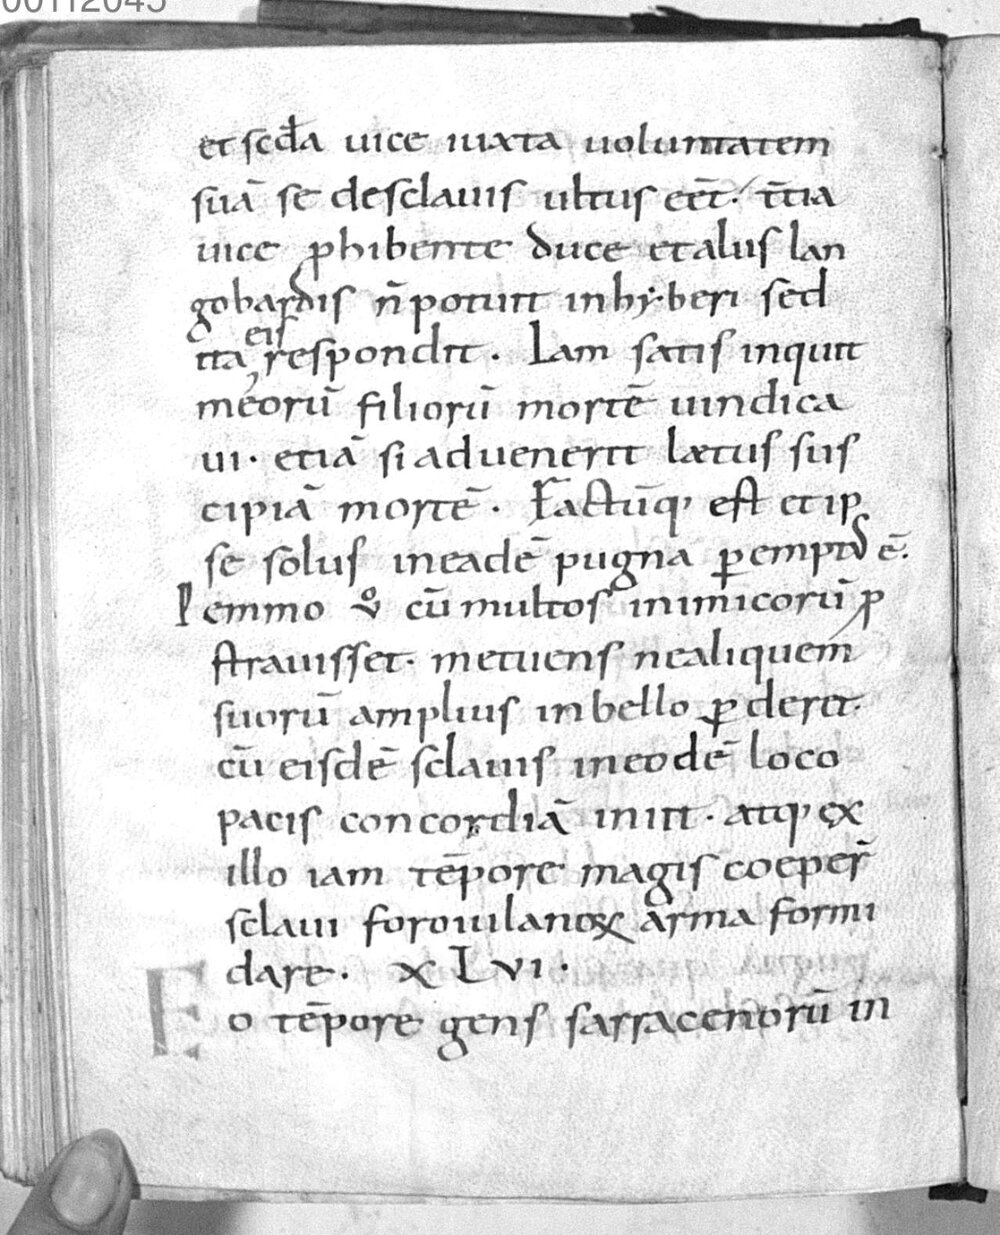 et scđa uice iuxta uoluntatem
suā se desclauis ultus eēt. t̄tia
uice ꝓhibente duce et aliis lan
gobardis n̄ potuit inhyberi sed
ita eis respondit. Iam satis inquit
meorū filiorū mortē uindica
ui. etiā si aduenerit lætus sus
cipiā mortē. Factūq; est et ip
se solus ineadē pugna ꝑempt; ē.
Pemmo v̊ cū multos inimicorū ꝓ
strauisset. metuens nealiquem
suorū amplius inbello ꝑderet.
cū eisdē sclauis ineodē loco
pacis concordiā iniit. atq; ex
illo iam tēpore magis coeper̄
sclaui foroiulanoꝝ arma formi
dare. XLVI.
Eo tēpore gens sarracenorū in